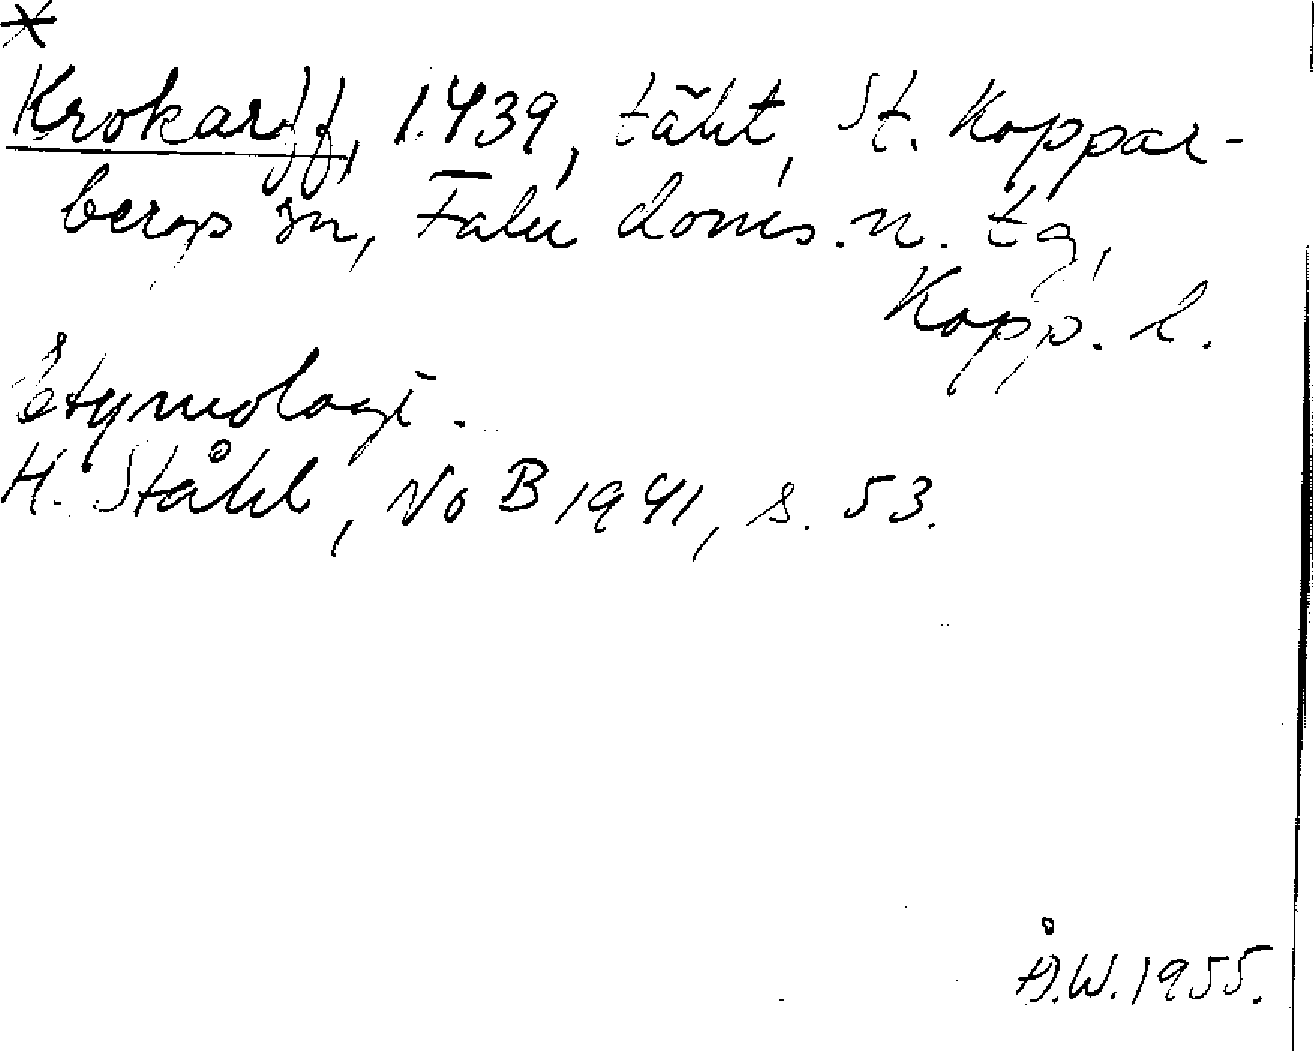 *
Krokarff, 1439, täkt, St. Koppar-
bergs sn, Falu doms. n. tg,
Kopp. l.
Etymologi.
H. Ståhl, NoB 1941, s. 53.
Å.W. 1955.